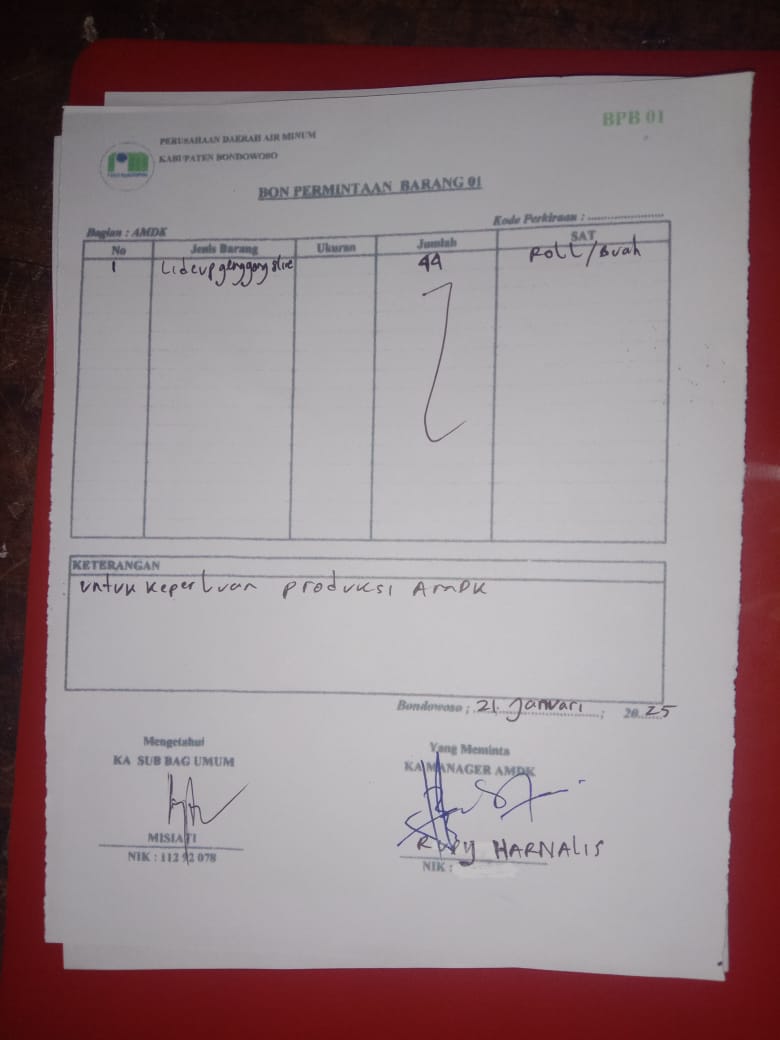 BPB 01
PERUSAHAAN DAERAH AIR MINUM
KABUPATEN BONDOWOSO
BON PERMINTAAN BARANG 01
Bagian : AMDK
Kode Perkiraan : ......................
No Jenis Barang Ukuran Jumlah SAT
1 Lidcup genggong 44 Roll/Buah
KETERANGAN
untuk keperluan produksi AMDK
Bondowoso ; 21 Januari ; 20 25
Mengetahui
KA SUB BAG UMUM
MISIATI
NIK : 112 92 078
Yang Meminta
KA MANAGER AMDK
HARNALIS
NIK :